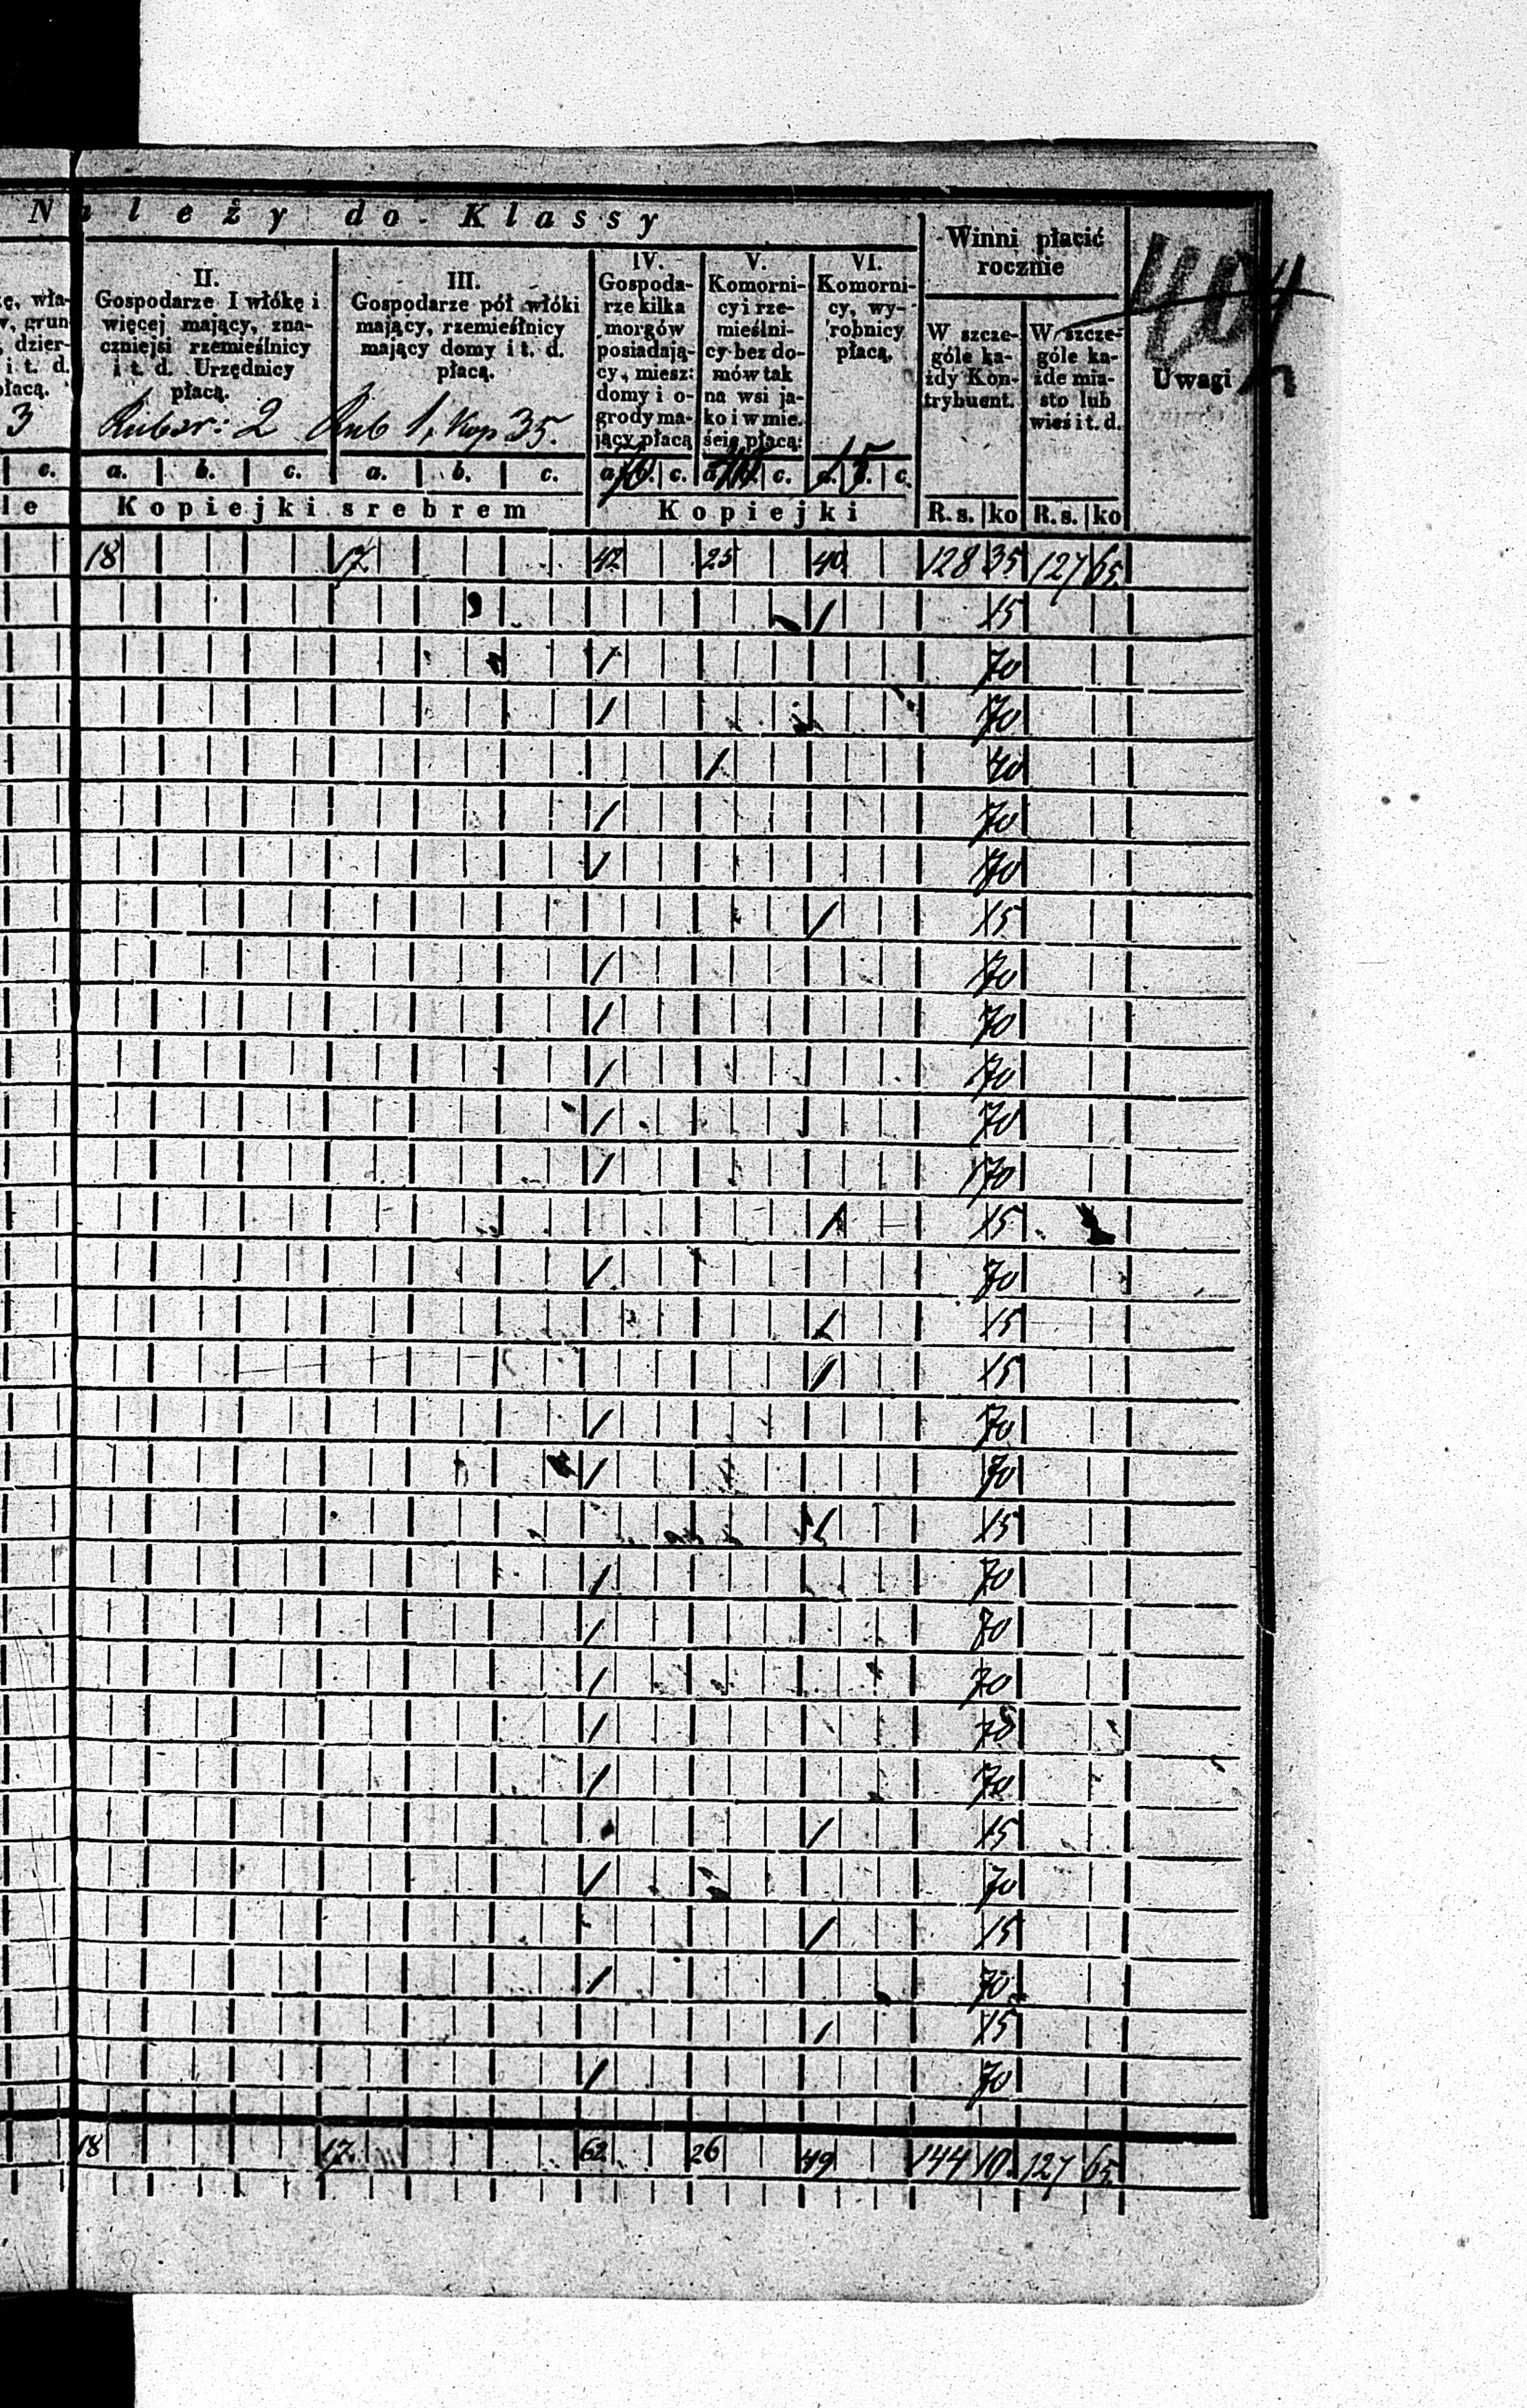 Należy do Klassy
Winni płacić
rocznie
404
Uwagi
3
II.
Gospodarze I włókę i
więcej mający, zna-
czniejsi rzemieślnicy
i t. d. Urzędnicy
płacą.
Rubsr: 2
III.
Gospodarze pół włóki
mający, rzemieślnicy
mający domy i t. d.
płacą.
Rub 1, Kop 35.
IV.
Gospoda-
rze kilka
morgów
posiadają-
cy, miesz:
domy i o-
grody ma-
jący płacą
V.
Komorni-
cy i rze-
mieślni-
cy bez do-
mów tak
na wsi ja-
ko i w mie.
ście płacą:
VI.
Komorni-
cy, wy-
robnicy
płacą.
15
W szcze-
góle ka-
żdy Kon-
trybuent.
W szcze-
góle ka-
żde mia-
sto lub
wieś i t. d.
c. a. b. c. a. b. c. a. c. a. c. c.
le Kopiejki srebrem Kopiejki R. s. ko R. s. ko
18 17. 42 25 40 128 35 127 65.
1 15
1 70
1 70
1 40
1 70
1 70
1 15
1 70
1 70
1 70
1 70
1 70
1 15
1 70
1 15
1 15
1 70
1 70
1 15
1 70
1 70
1 70
1 70
1 70
1 15
1 70
1 15
1 70
1 15
1 70
18 17. 62 26 49 144 10. 127 65.